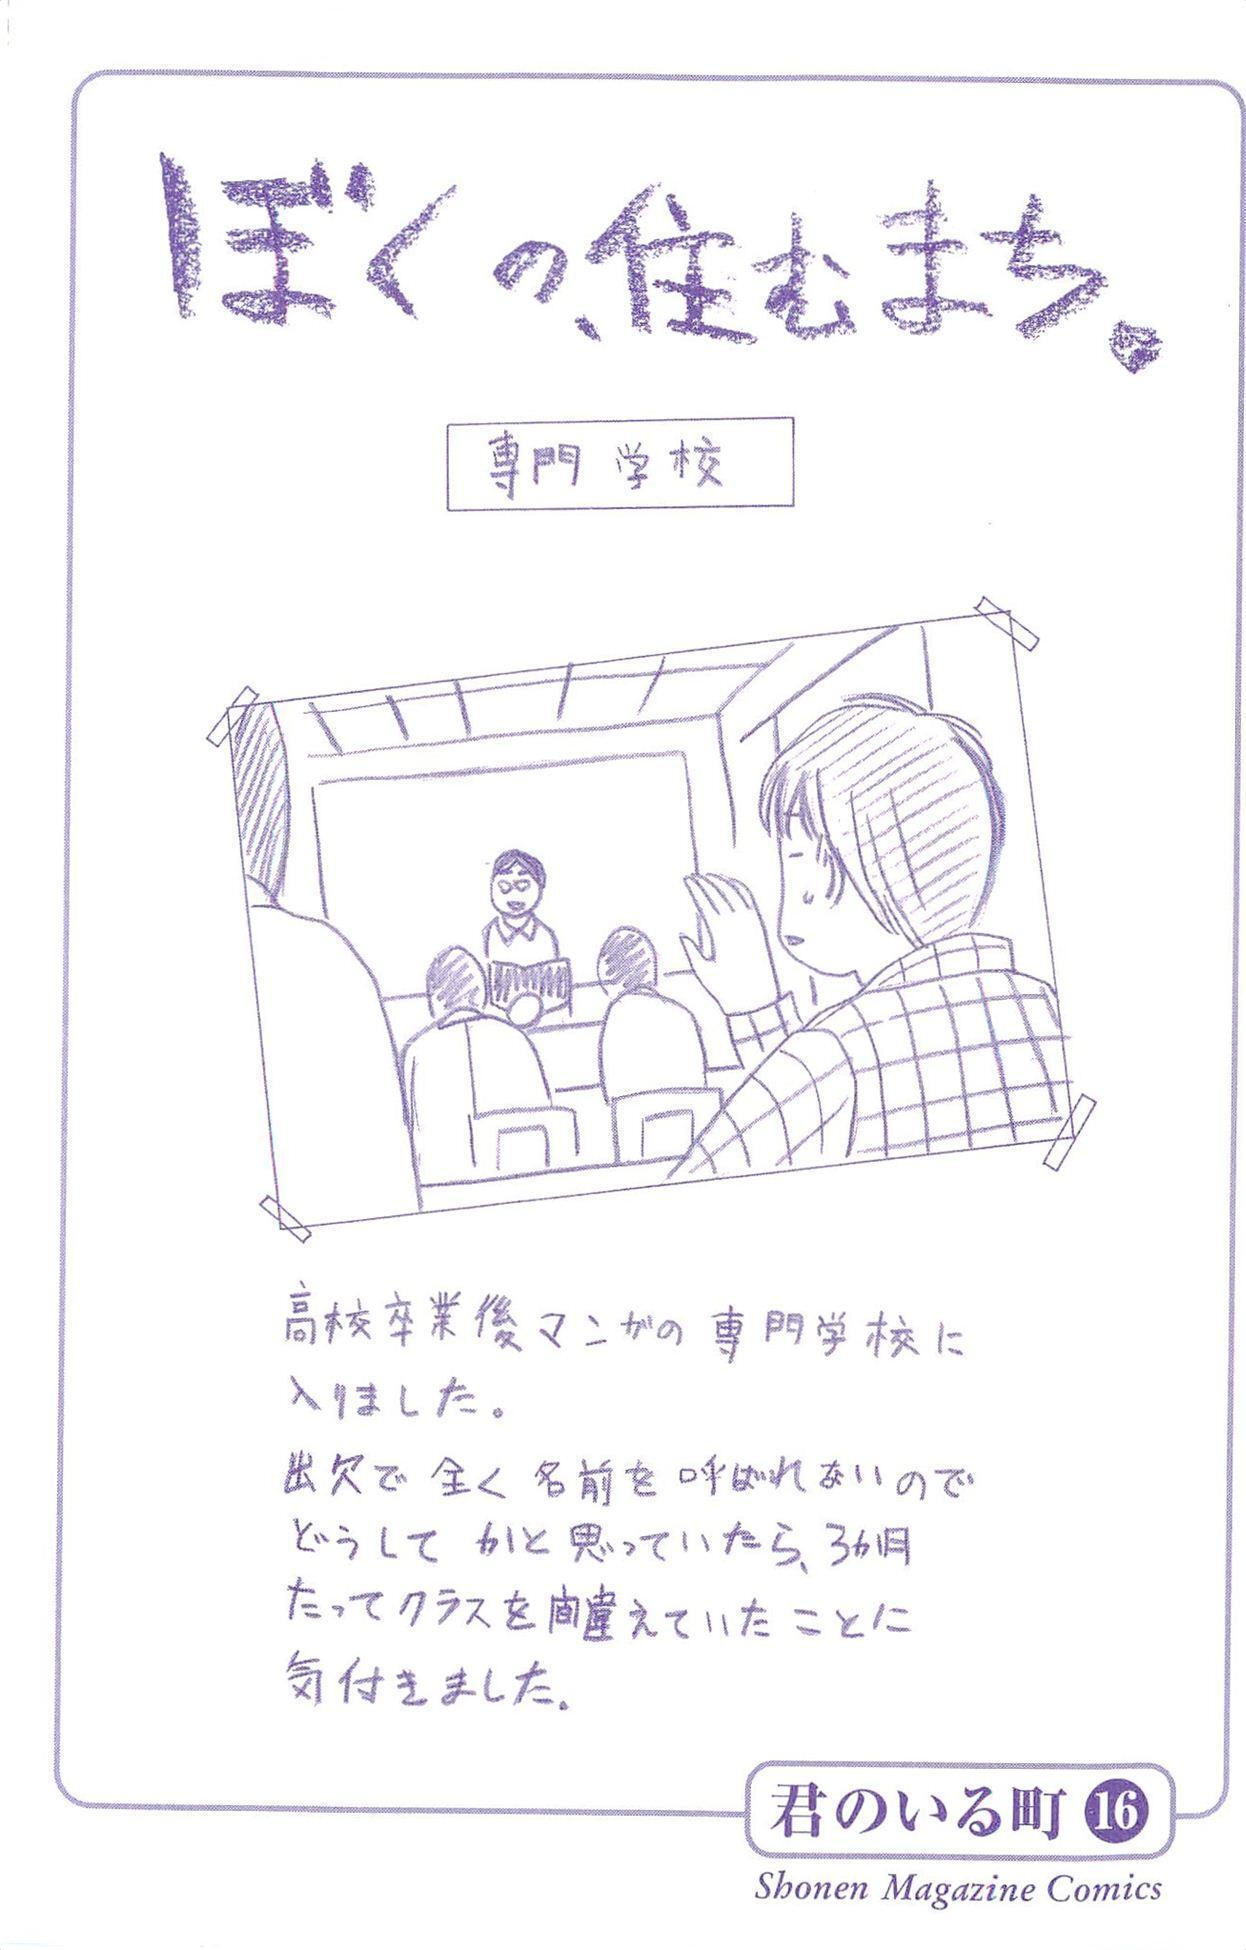 ぼくの、住むまち。
専門学校
高校卒業後マンガの専門学校に
入りました。
出欠で全く名前を呼ばれないので
どうしてかと思っていたら、3か月
たってクラスを間違えていたことに
気付きました。
君のいる町 16
Shonen Magazine Comics